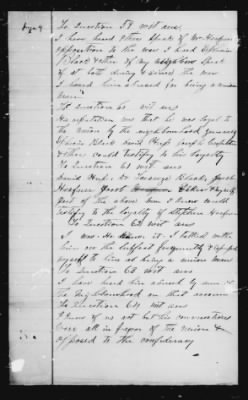 To Question 59 wit ans
I have heard others speak of Mr Hoofner
opposition to the war I heard
Black & other of my neighbors speak
of it both during & since the war
I heard him abused for being a union
man
To Question 60 wit ans
His reputation was that he was loyal to
the union by the neighborhood generally
Black David Huf Joseph
& others could testify to his loyalty
To Question 61 wit ans
David Huf, Black, Jacob
Hoofner Jacob
part of the above men I know could
testify to the loyalty of Stephen Hoofner
To Question 62 wit ans
I was. He knew it. I talked with
him on the subject frequently &
myself to him as being a union man
To Question 63 wit ans
I have heard him abused by men in
the Neighborhood on that account
To Question 64 wit ans
I know of no act but his conversations
were all in favor of the union &
opposed to the confederacy